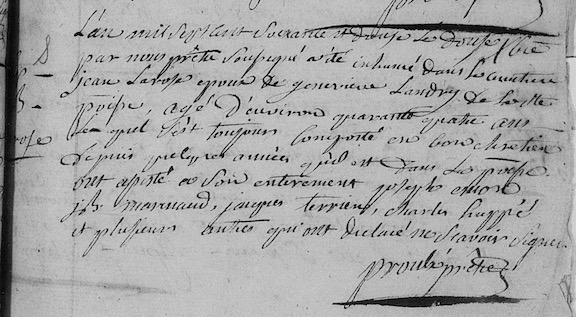 L'an mil sept cent soixante et douse le douse
par nous prêtre Soussigné a été inhumé dans le cimetiere
jean Larose epoux de genevieve Landry de cette
poisse, agé d'environ quarante quatre ans
Le quel s'est toujours comporté en bon chretien
Depuis quelques années qu'il est dans la poisse
ont assisté a Son enterement joseph
jb marineaud, jacques terrien, charles huppé
et plusieurs autres qui ont declaré ne scavoir signer
proulx prêtre